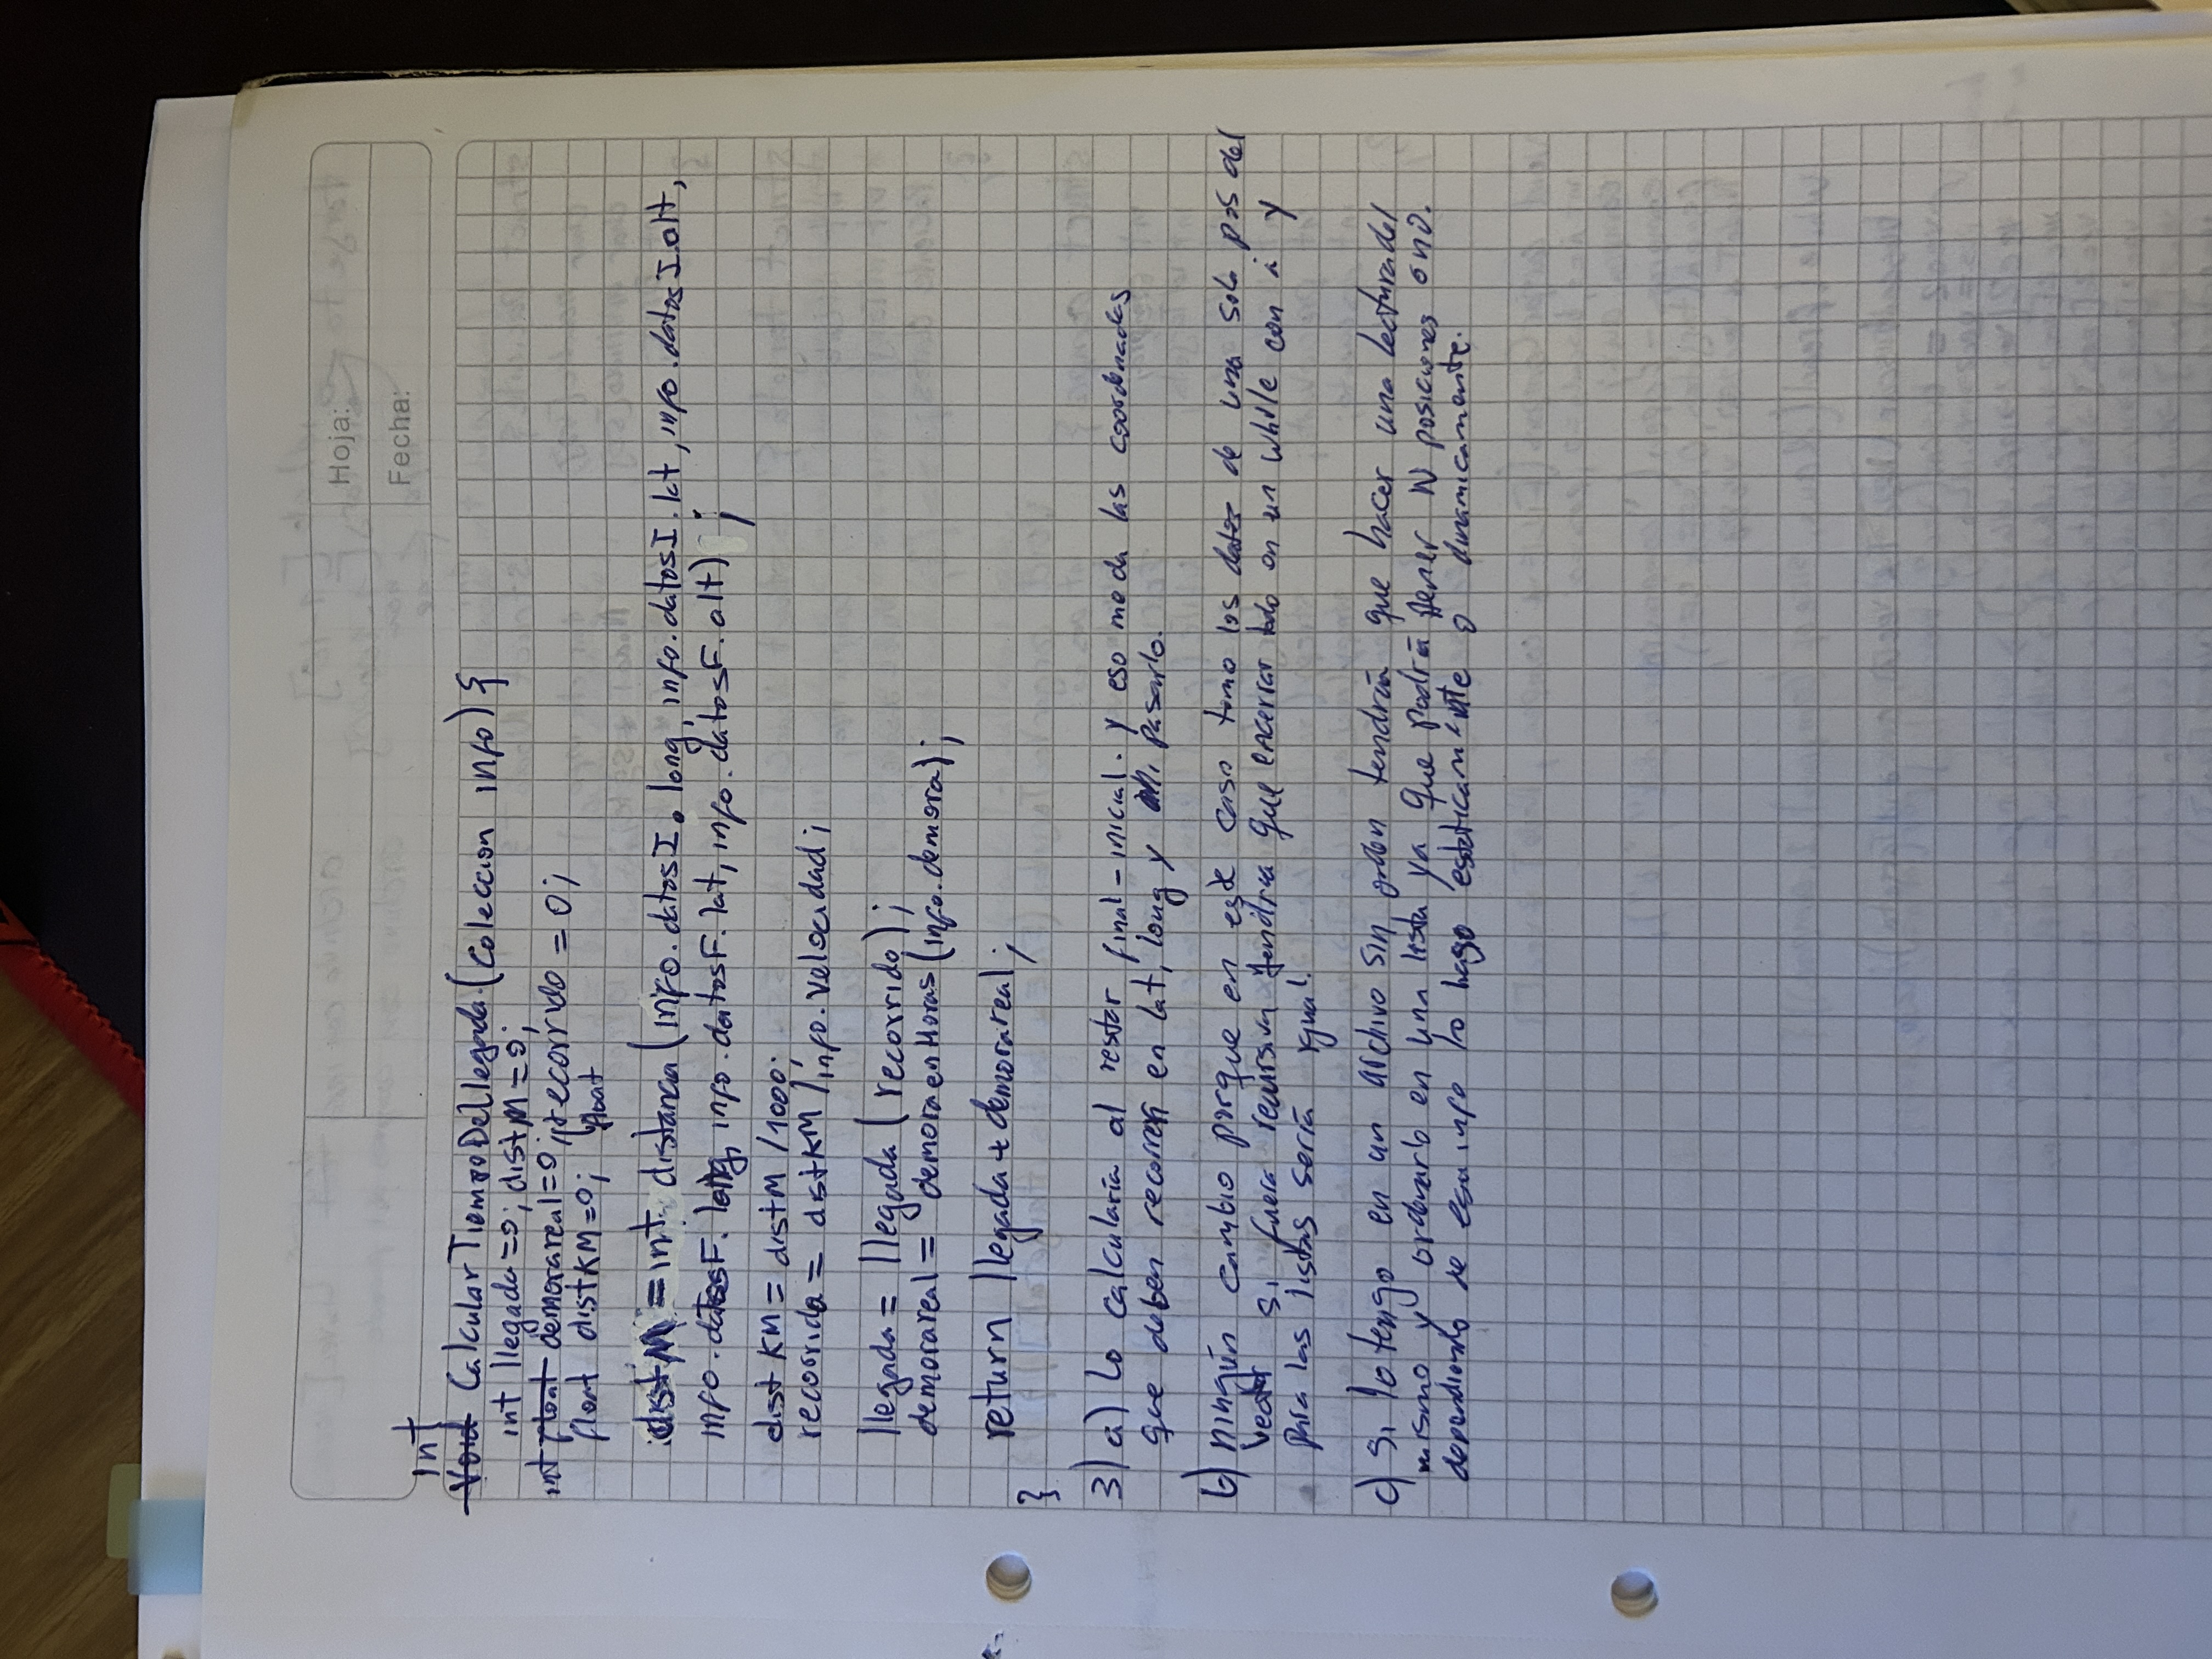 Hoja:
Fecha:
int
Void CalcularTiempoDellegada (Coleccion info) {
int llegada=0; distM=0;
int float demorareal=0; recorrido = 0;
float distKM=0; float
distM = int distancia (info.datosI.long, info.datosI.lat, info.datosI.alt,
info.datosF.long, info.datosF.lat, info.datosF.alt) ;
distKM = distM /1000;
recorrido = distKM / info.velocidad;
llegada = llegada (recorrido);
demorareal = demoraenHoras (info.demora);
return llegada + demorareal;
}
3) a) Lo calcularía al restar final-inicial. y eso me da las coordenadas
que deben recorrer en lat, long y pasarlo.
b) ningún cambio porque en este caso tomo los datos de una sola pos del
Vector si fuera recursiva tendría que encerrar todo en un while con i y
para las listas sería igual.
c) Si lo tengo en un archivo sin orden tendría que hacer una lectura del
mismo y ordenarlo en una lista ya que podría tener N posiciones o no.
dependiendo de esa info lo hago estaticamente o dinamicamente.